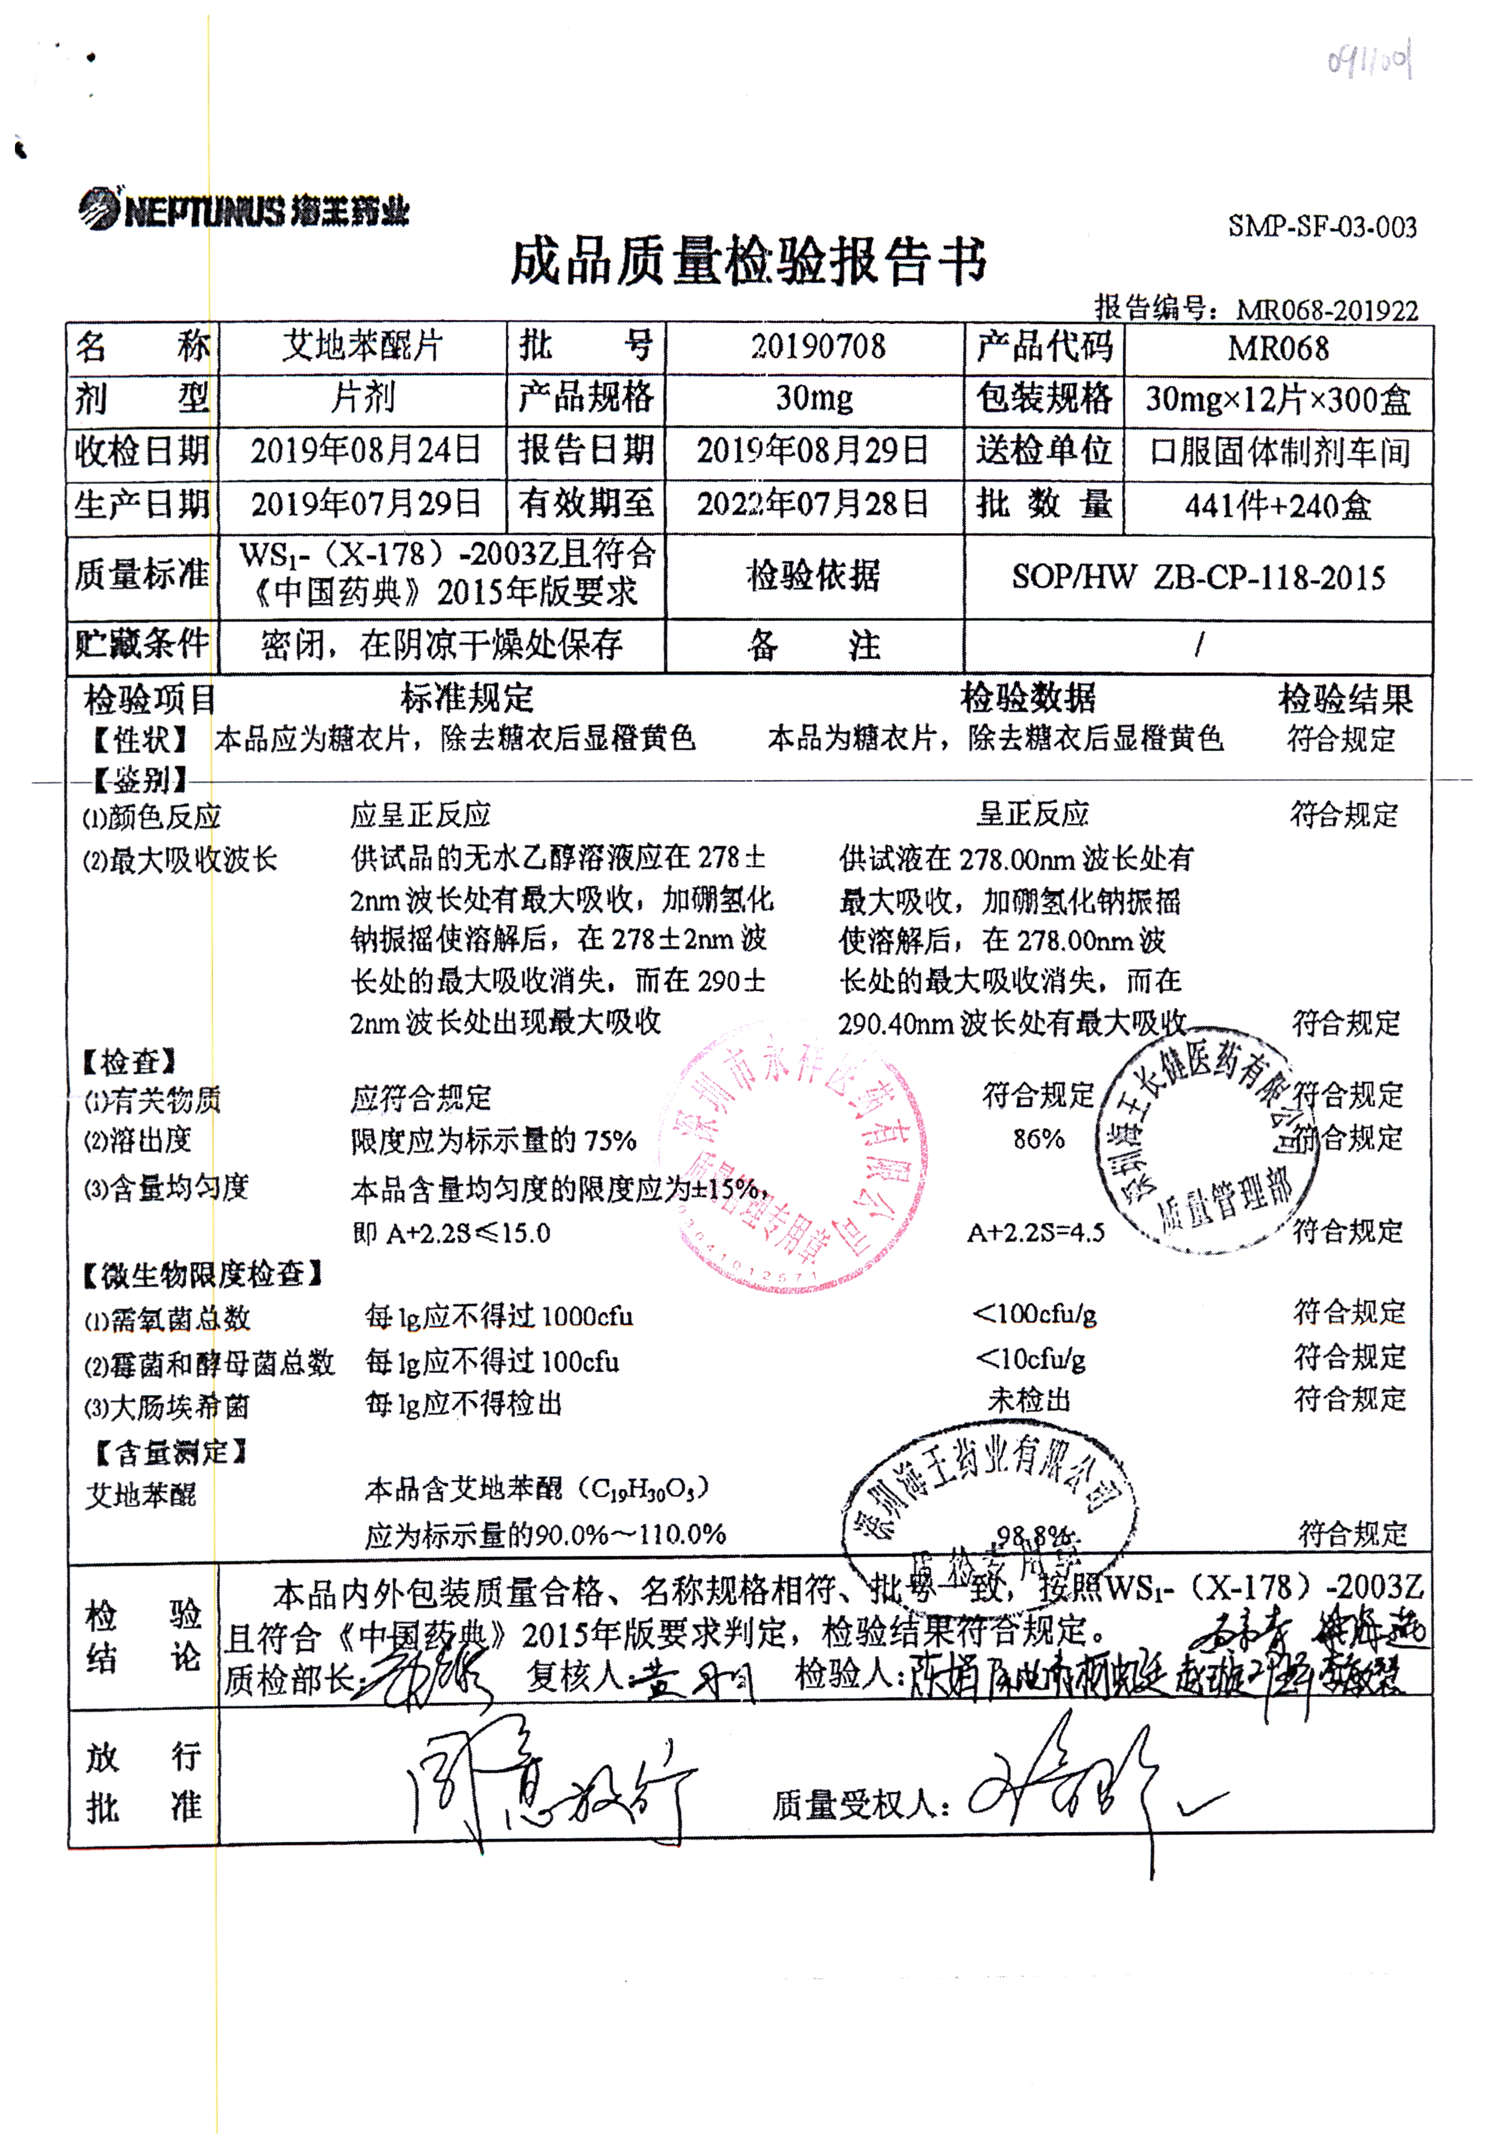 091001
NEPTUNUS 海王药业
SMP-SF-03-003
成品质量检验报告书
报告编号：MR068-201922
名 称 艾地苯醌片 批 号 20190708 产品代码 MR068
剂 型 片剂 产品规格 30mg 包装规格 30mg×12片×300盒
收检日期 2019年08月24日 报告日期 2019年08月29日 送检单位 口服固体制剂车间
生产日期 2019年07月29日 有效期至 2022年07月28日 批 数 量 441件+240盒
质量标准 WS₁-（X-178）-2003Z且符合 检验依据 SOP/HW ZB-CP-118-2015
《中国药典》2015年版要求
贮藏条件 密闭，在阴凉干燥处保存 备 注 /
检验项目 标准规定 检验数据 检验结果
【性状】 本品应为糖衣片，除去糖衣后显橙黄色 本品为糖衣片，除去糖衣后显橙黄色 符合规定
【鉴别】
⑴颜色反应 应呈正反应 呈正反应 符合规定
⑵最大吸收波长 供试品的无水乙醇溶液应在 278± 供试液在 278.00nm 波长处有
2nm 波长处有最大吸收，加硼氢化 最大吸收，加硼氢化钠振摇
钠振摇使溶解后，在 278±2nm 波 使溶解后，在 278.00nm 波
长处的最大吸收消失，而在 290± 长处的最大吸收消失，而在
2nm 波长处出现最大吸收 290.40nm 波长处有最大吸收 符合规定
【检查】
⑴有关物质 应符合规定 符合规定 符合规定
⑵溶出度 限度应为标示量的 75% 86% 符合规定
⑶含量均匀度 本品含量均匀度的限度应为±15%，
即 A+2.2S≤15.0 A+2.2S=4.5 符合规定
深圳市永祥医药有限公司
质量管理专用章
深圳海王长健医药有限公司
质量管理部
【微生物限度检查】
⑴需氧菌总数 每1g应不得过 1000cfu <100cfu/g 符合规定
⑵霉菌和酵母菌总数 每1g应不得过 100cfu <10cfu/g 符合规定
⑶大肠埃希菌 每1g应不得检出 未检出 符合规定
【含量测定】
艾地苯醌 本品含艾地苯醌（C₁₉H₃₀O₅）
应为标示量的90.0%～110.0% 98.8% 符合规定
深圳海王药业有限公司
质检专用章
检 验 本品内外包装质量合格、名称规格相符、批号一致，按照WS₁-（X-178）-2003Z
结 论 且符合《中国药典》2015年版要求判定，检验结果符合规定。
质检部长： 复核人： 检验人：
放 行 同意放行
批 准 质量受权人：